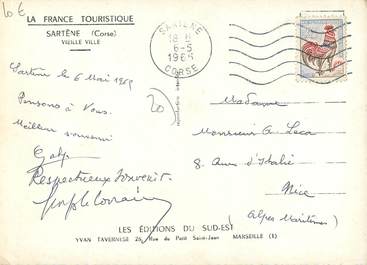 10 €
LA FRANCE TOURISTIQUE
SARTÈNE (Corse)
VIEILLE VILLE
SARTENE
18 H
6-5
1965
CORSE
Sartène le 6 Mai 1965
Pensons à Vous.
Meilleur souvenir
Gaby
Respectueux souvenir.
20
Madame
Monsieur A. Luca
8. Aven. d'Italie
Nice
(Alpes Maritimes)
LES ÉDITIONS DU SUD-EST
YVAN TAVERNESE 26, Rue du Petit Saint-Jean MARSEILLE (1)